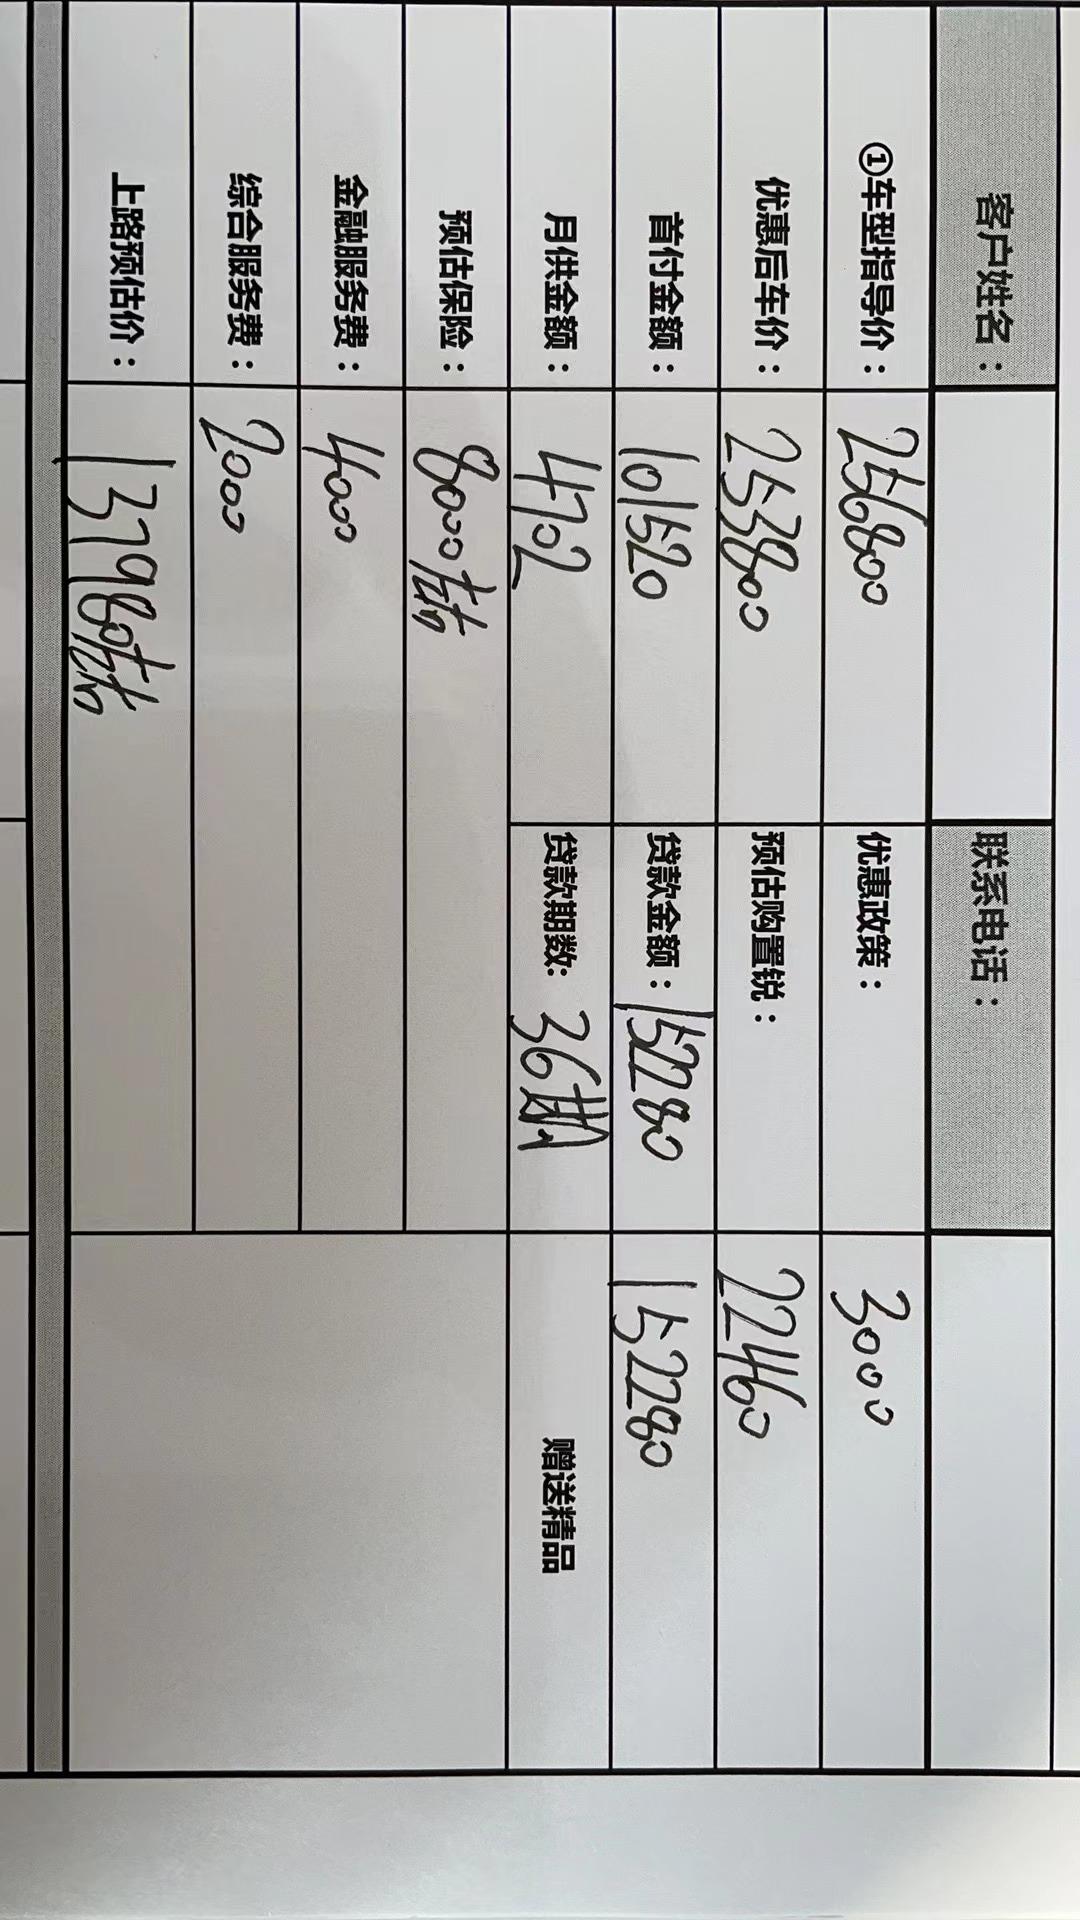 客户姓名： 联系电话：
①车型指导价： 256800 优惠政策： 3000
优惠后车价： 253800 预估购置锐： 22460
首付金额： 101520 贷款金额： 152280 152280
月供金额： 4702 贷款期数: 36期 赠送精品
预估保险： 8000左右
金融服务费： 4000
综合服务费： 2000
上路预估价： 137980左右